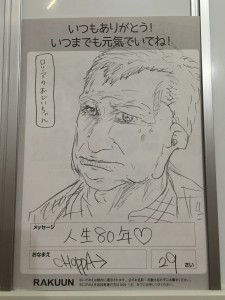 いつもありがとう!
いつまでも元気でいてね!
ロシアのおじいちゃんへ
メッセージ
人生80年♡
おなまえ
CHOPPA→
29
さい
RAKUUN